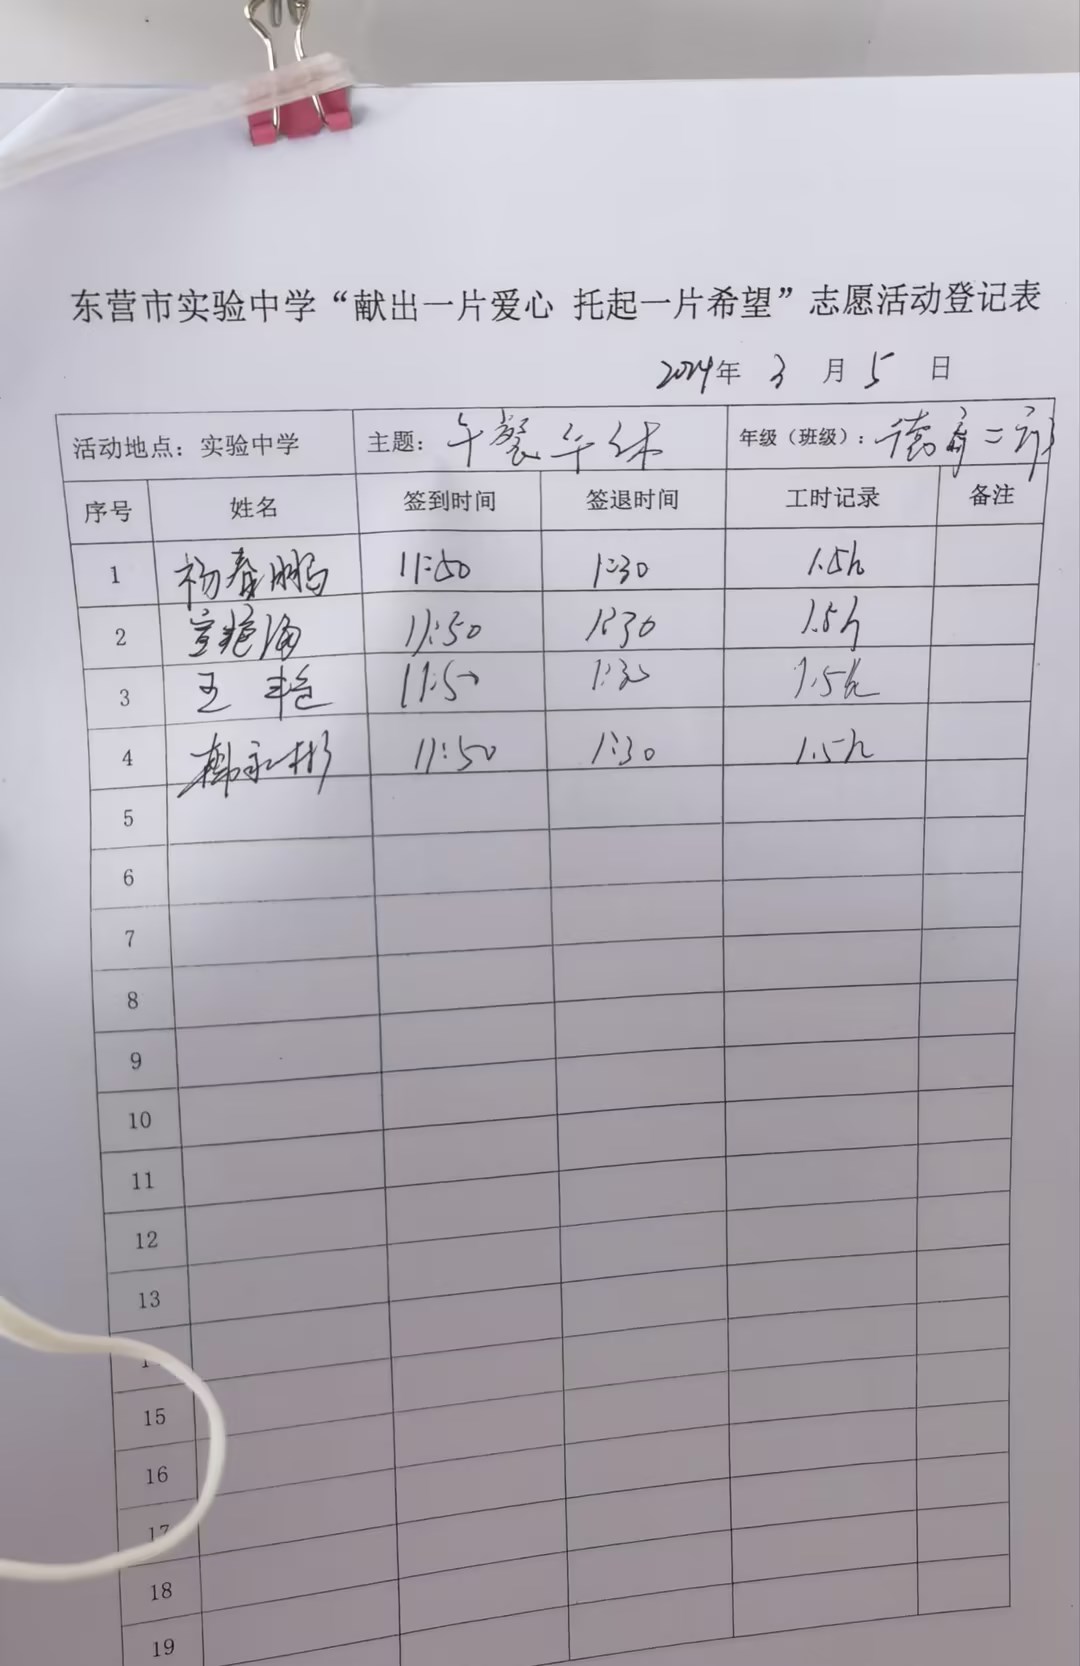 东营市实验中学“献出一片爱心 托起一片希望”志愿活动登记表
2024年 3 月 5 日
活动地点：实验中学 主题：午餐午休 年级（班级）：德育二部
序号 姓名 签到时间 签退时间 工时记录 备注
1 杨春鹏 11:50 1:30 1.5h
2 11:50 1:30 1.5h
3 王艳 11:50 1:30 1.5h
4 11:50 1:30 1.5h
5
6
7
8
9
10
11
12
13
15
16
17
18
19